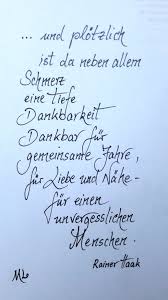 ... und plötzlich
ist da neben allem
Schmerz
eine Tiefe
Dankbarkeit
Dankbar für
gemeinsame Jahre,
für Liebe und Nähe -
für einen
unvergesslichen
Menschen.
Rainer Haak